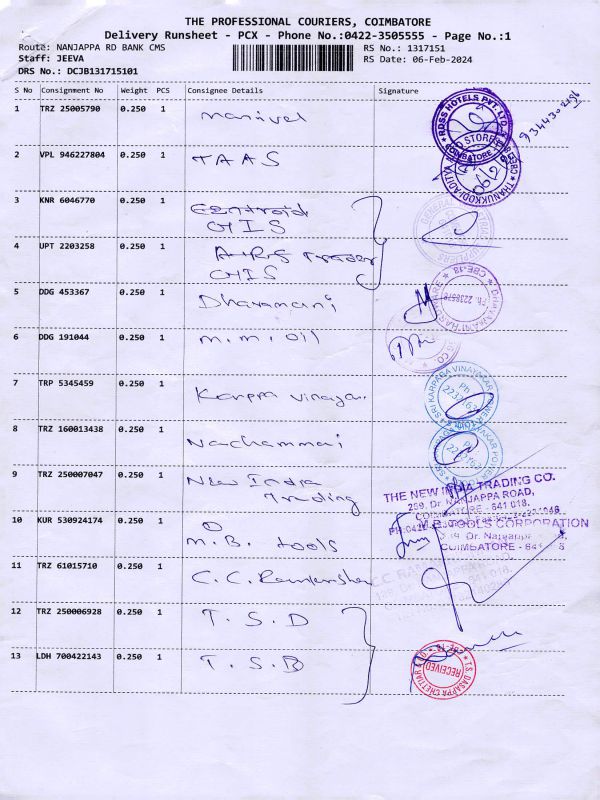 THE PROFESSIONAL COURIERS, COIMBATORE
Delivery Runsheet - PCX - Phone No.:0422-3505555 - Page No.:1
Route: NANJAPPA RD BANK CMS
RS No.: 1317151
Staff: JEEVA
RS Date: 06-Feb-2024
DRS No.: DCJB131715101
S No Consignment No Weight PCS Consignee Details Signature
1 TRZ 25005790 0.250 1 Manivel
ROSS HOTELS PVT. LTD. STORE COIMBATORE
2 VPL 946227804 0.250 1 TAAS
3 KNR 6046770 0.250 1
GHIS
4 UPT 2203258 0.250 1
GHIS
5 DDG 453367 0.250 1 Dharamani
6 DDG 191044 0.250 1 M.M. Oil
7 TRP 5345459 0.250 1 Karppa Vinayar
SRI KARPPARA VINAYAKAR POWER
8 TRZ 160013438 0.250 1 Nachammai
9 TRZ 250007047 0.250 1 New India
Trading
THE NEW INDIA TRADING CO.
259, Dr. NANJAPPA ROAD,
COIMBATORE - 641 018.
10 KUR 530924174 0.250 1 M.B. tools
M.B. TOOLS CORPORATION
Dr. Nanjappa
COIMBATORE - 641
11 TRZ 61015710 0.250 1 C.C.
12 TRZ 250006928 0.250 1 T.S.D
13 LDH 700422143 0.250 1 T.S.B
T.S. DASAPPA CHETTIAR & CO. CBE-18 RECEIVED